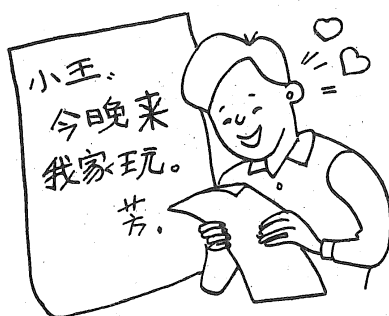 小王、
今晚来
我家玩。
芳.